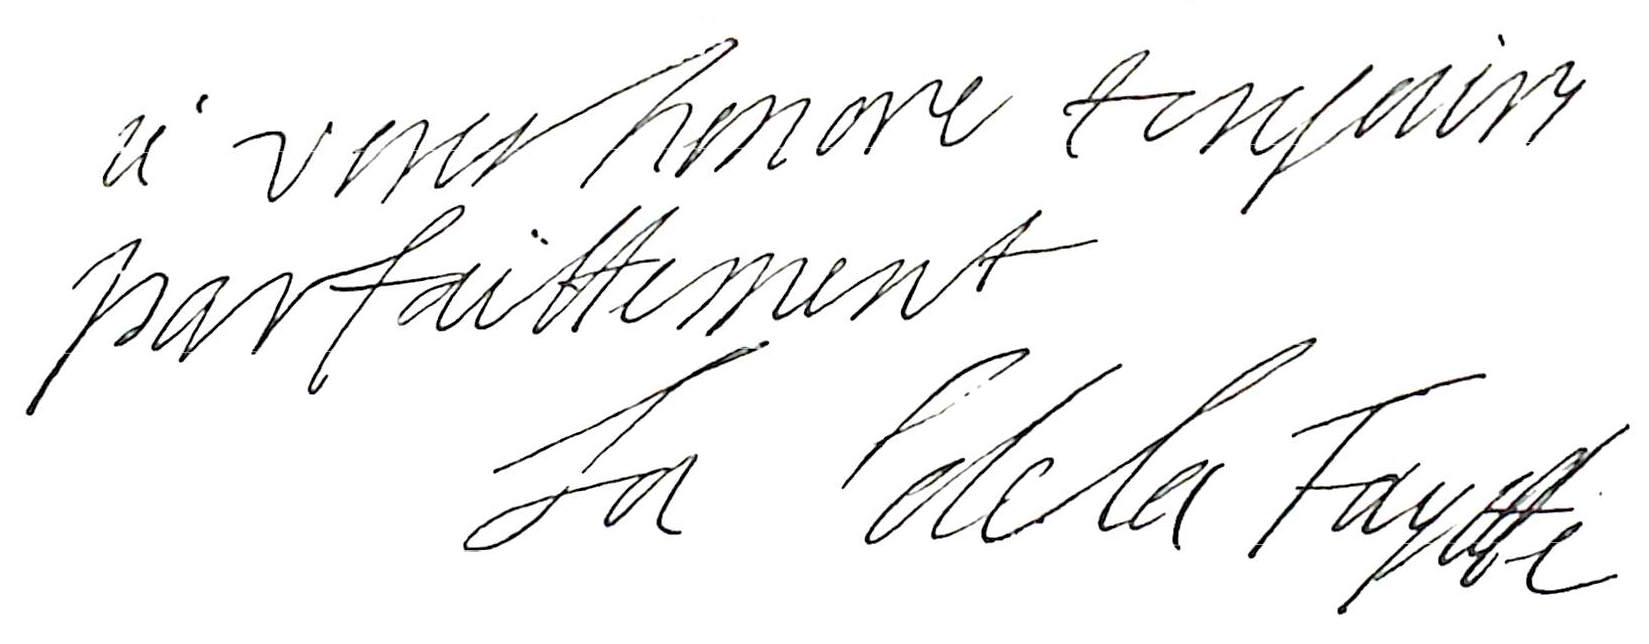 à vous honore toujours
parfaittement
La C de la Fayette